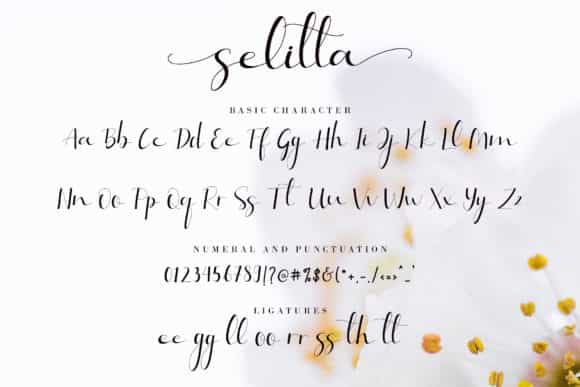 selitta
BASIC CHARACTER
Aa Bb Cc Dd Ee Ff Gg Hh Ii Jj Kk Ll Mm
Nn Oo Pp Qq Rr Ss Tt Uu Vv Ww Xx Yy Zz
NUMERAL AND PUNCTUATION
0123456789!?@#%$&(*+,-./<=>^_'
LIGATURES
ee gg ll oo rr ss th tt